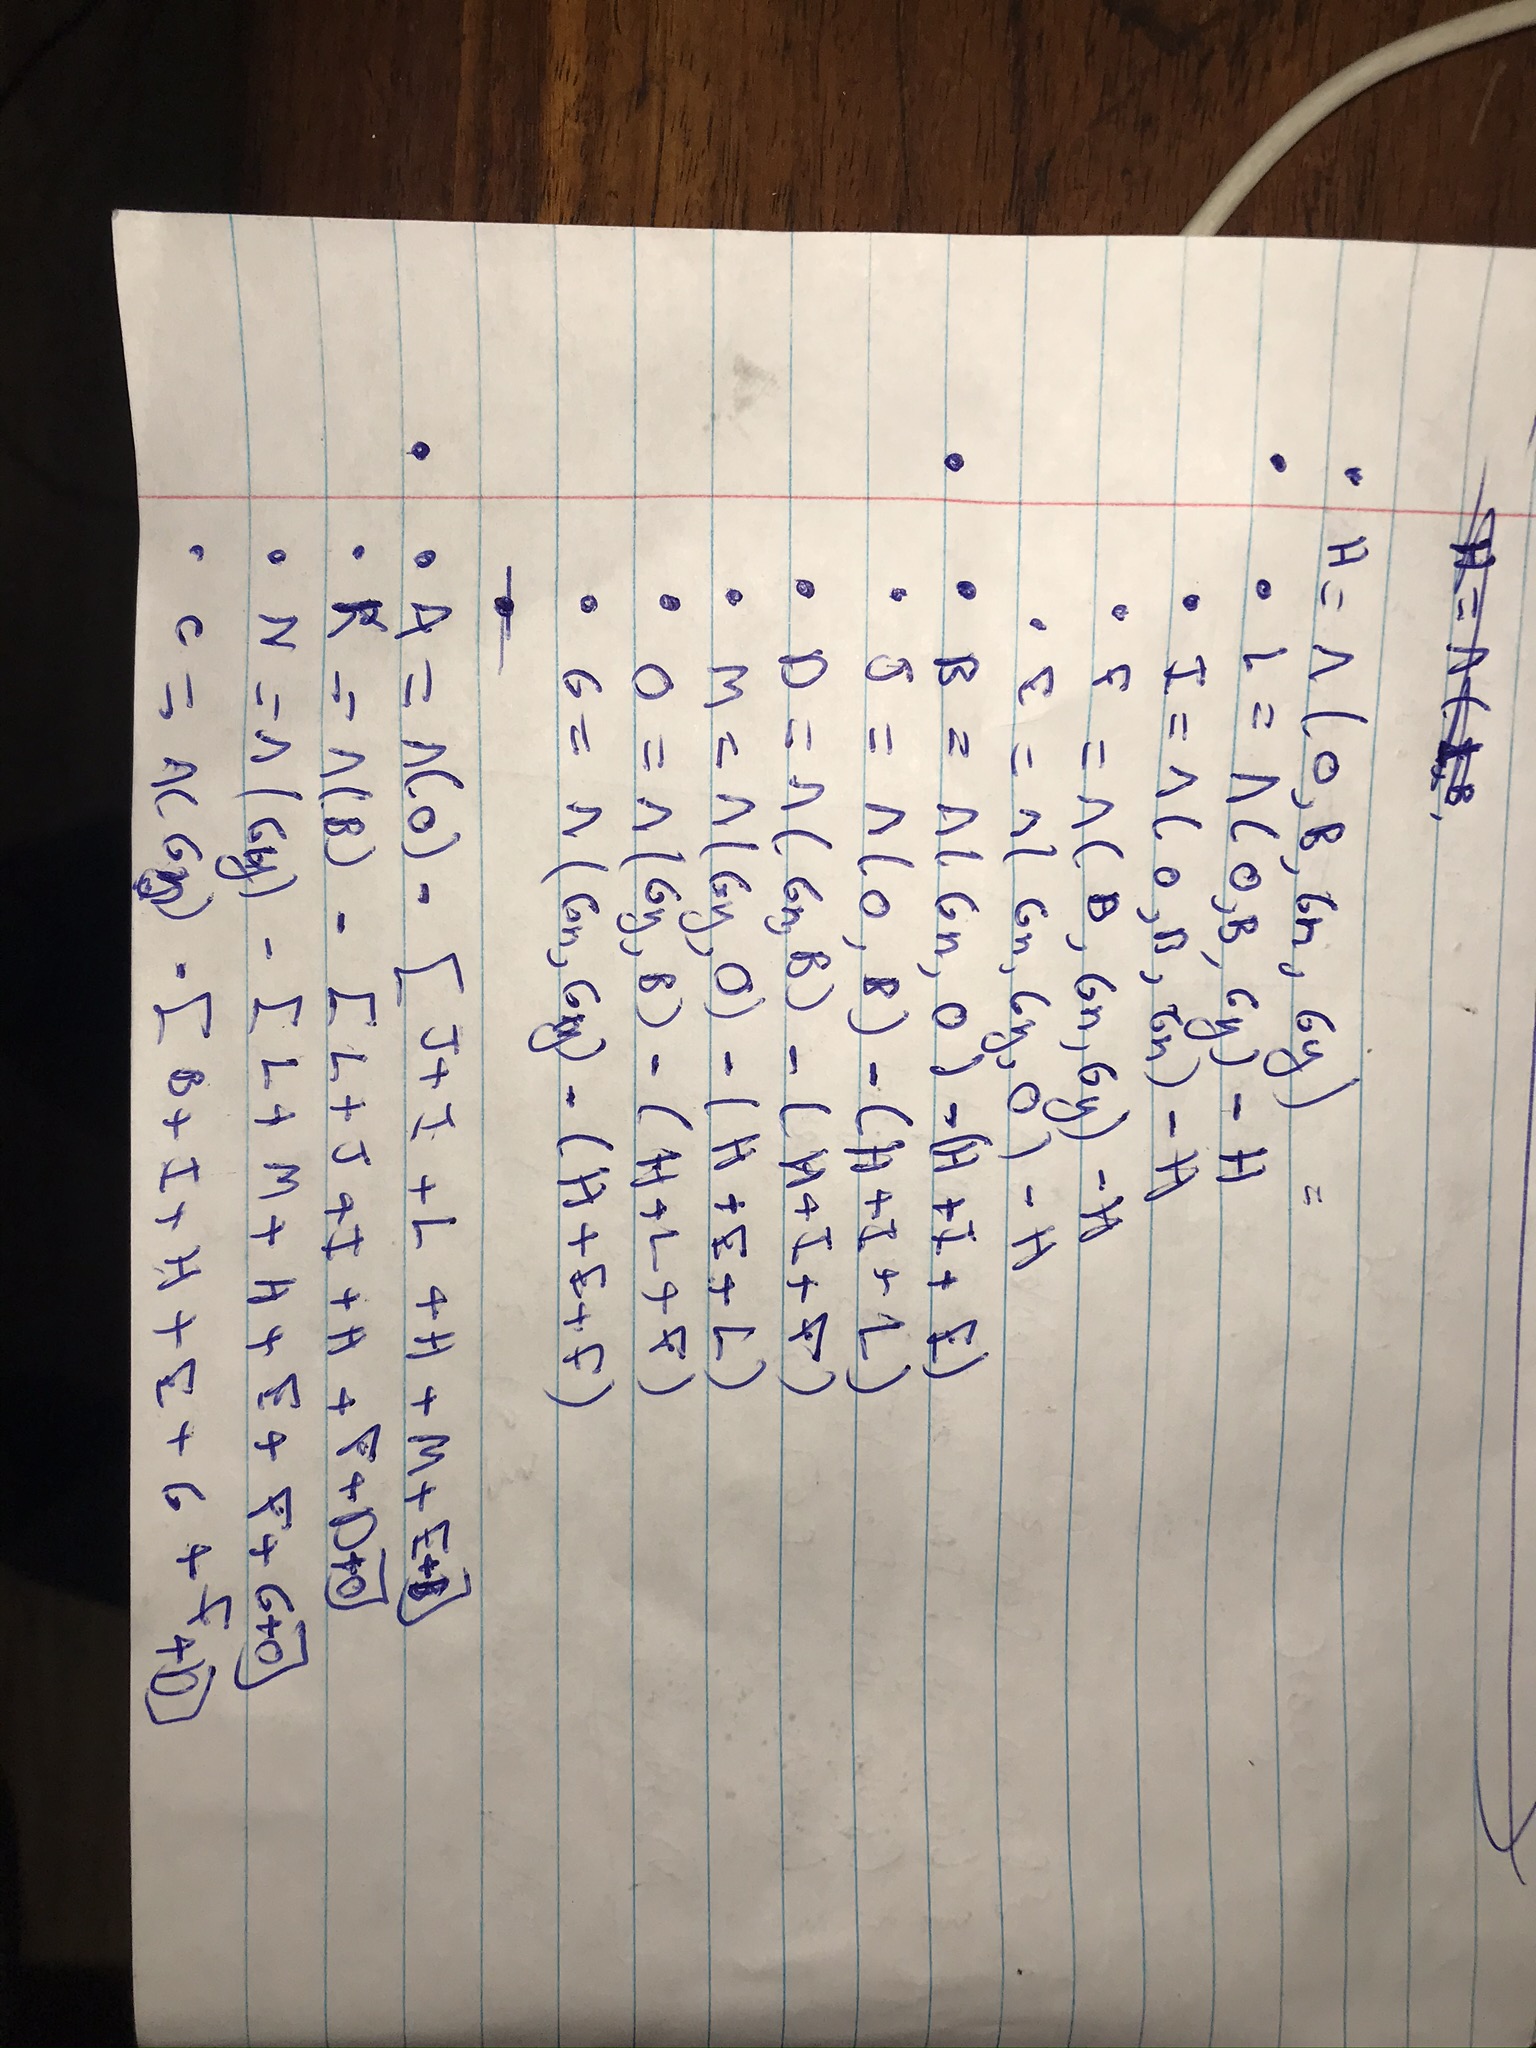 H = n(
• H = n(O, B, Gn, Gy) =
• • L = n(O, B, Gy) - H
• I = n(O, B, Gn) - H
• F = n(B, Gn, Gy) - H
• E = n(Gn, Gy, O) - H
• • B = n(Gn, O) - (H + I + E)
• J = n(O, B) - (H + I + L)
• D = n(Gn, B) - (H + I + F)
• M = n(Gy, O) - (H + E + L)
• O = n(Gy, B) - (H + L + F)
• G = n(Gn, Gy) - (H + E + F)
• • A = n(O) - [J + I + L + H + M + E + B]
• K = n(B) - [L + J + I + H + F + D + O]
• N = n(Gy) - [L + M + H + E + F + G + O]
• C = n(Gn) - [B + I + H + E + G + F + D]